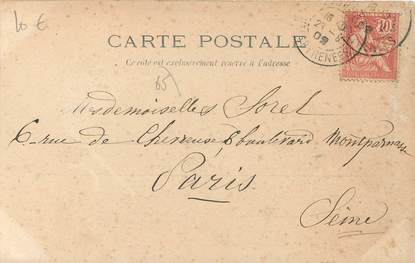 10 €
CARTE POSTALE
Ce côté est exclusivement réservé à l'adresse
65
Mesdemoiselles Sorel
6 rue de Chevreuse, boulevard Montparnasse
Paris
Seine
10